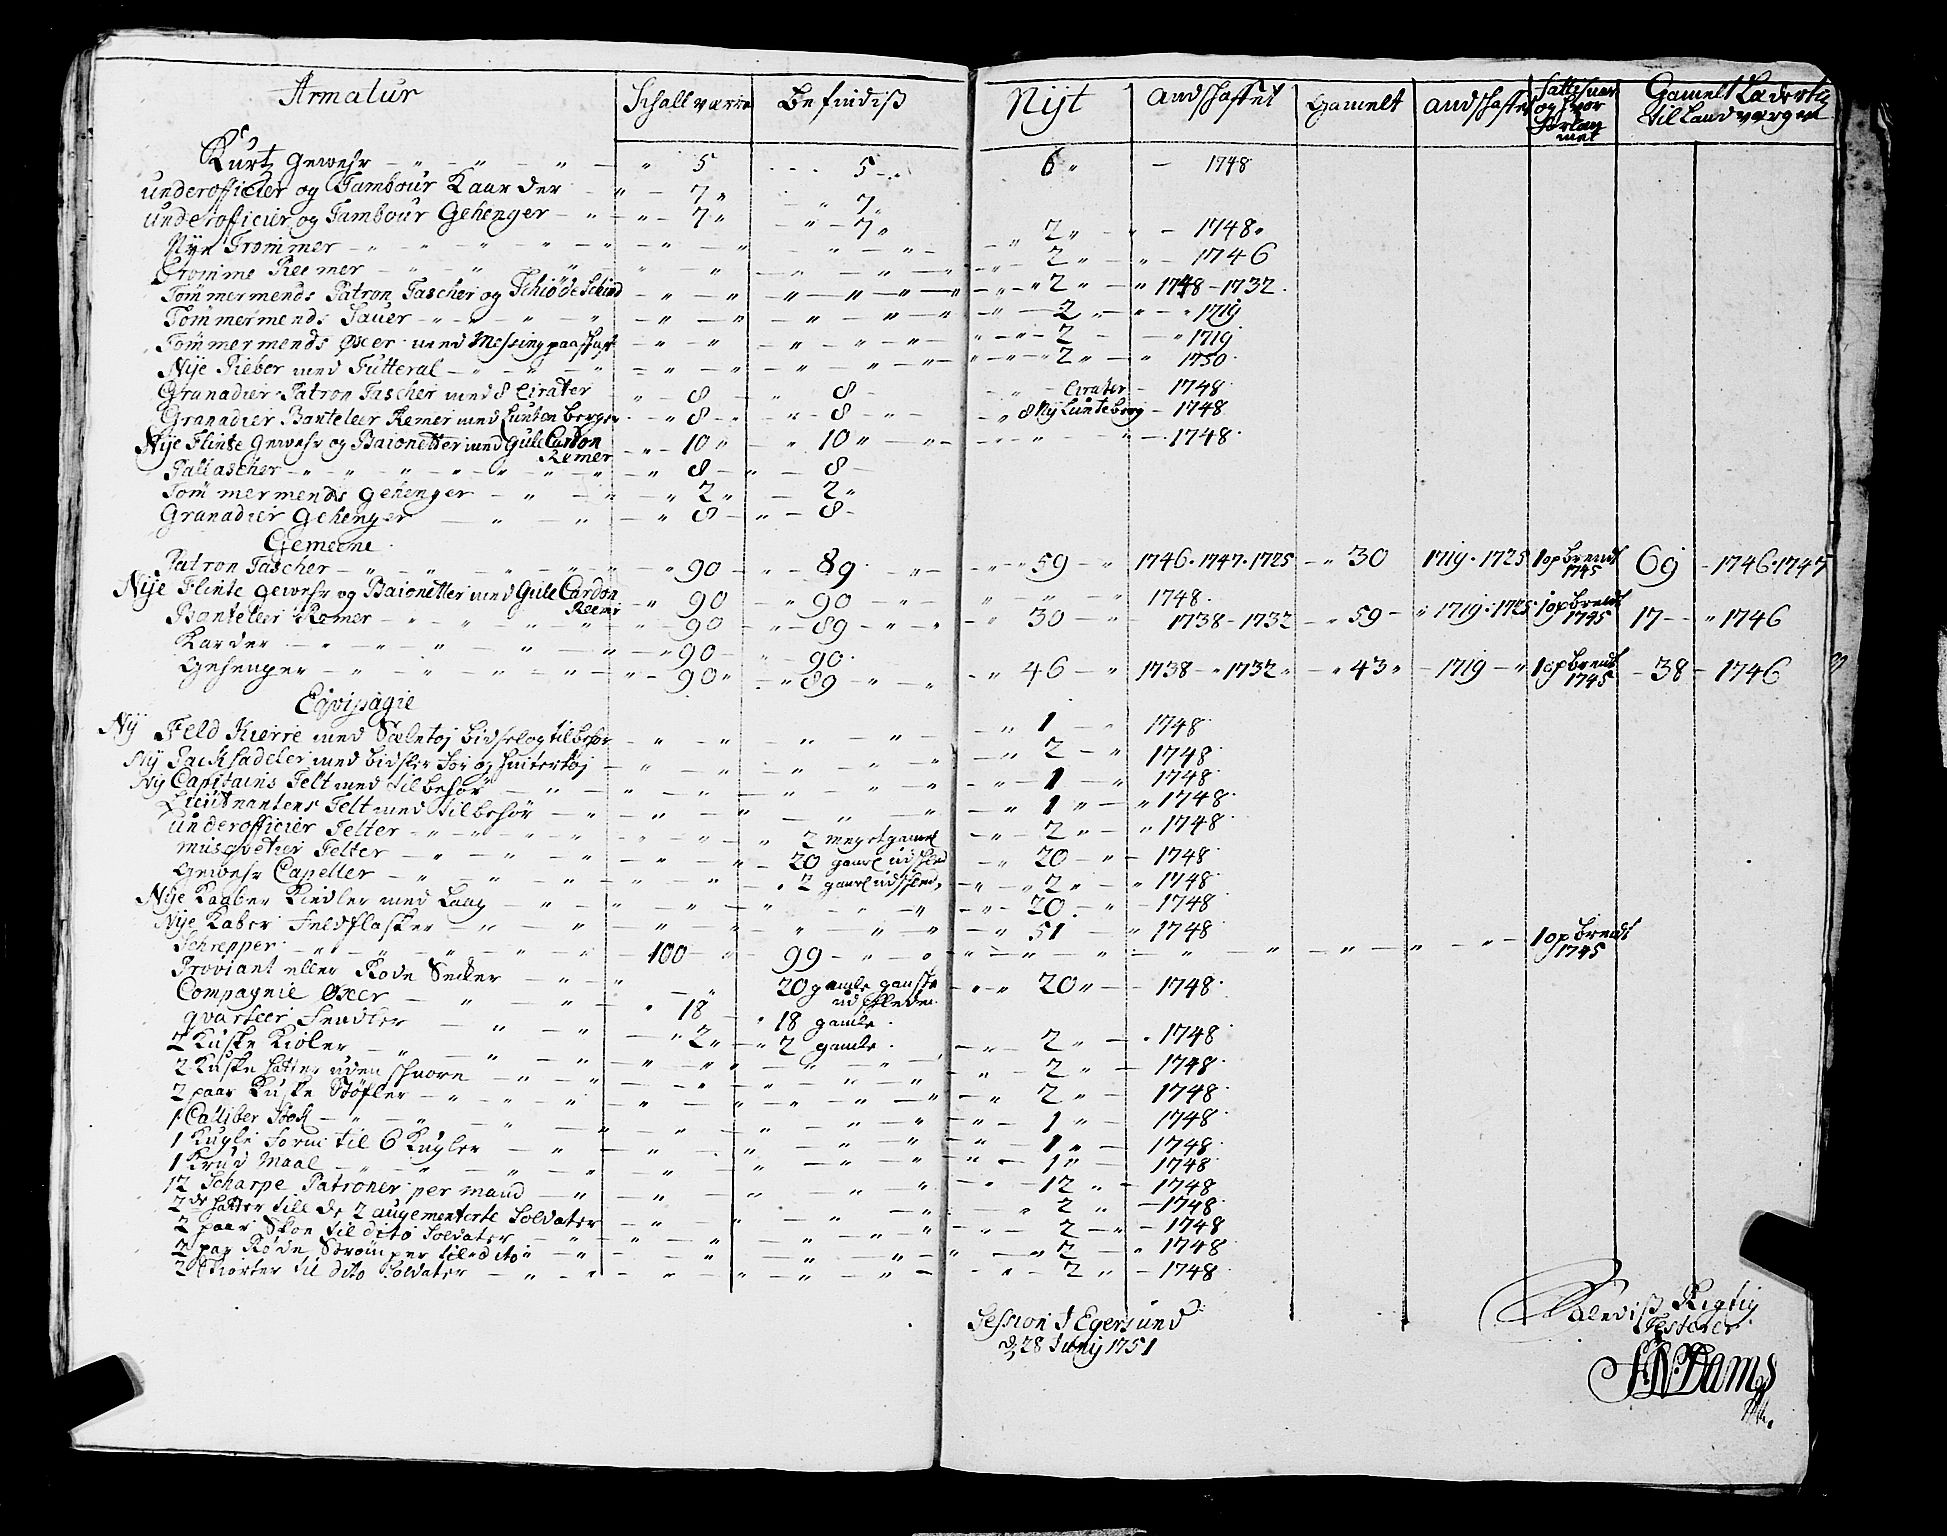 Armatur Schall værre Befindiß Nyt Andschaffet Gamelt Andschaffet og hvor Gamelt Ladertig til Landværgen
Kurtz Gewehr 5 5 6 1748
Underofficier og Tambour Kaarder 7 7
Underofficier og Tambour Gehenger 7 7 2 1748
Nye Trommer 2 1746
Tromme Reemer 2 1748-1732
Tømmermends Patron Tascher og Schiøde Skind 2 1719
Tømmermends Sauer 2 1719
Tømmermends Øxer med Messing paa Skaft 2 1750
Nije Pieber med Futteral
Granadier Patron Tascher med 8 Cirater 8 8 Cirater 1748
Granadier Banteleer Remer med Lunten berger 8 8 8 Ny Lunteberg 1748
Nije Flinte Gewehr og Baionetter med Gule Cardon Reemer 10 10 1748
Pallascher 8 8
Tømmermends Gehenger 2 2
Granadier Gehenger 8 8
Gemeene
Patron Tascher 90 89 59 1746.1747.1725 30 1719.1725 1 opbrendt 1745 69 1746.1747
Nije Flinte Gewehr og Baionetter med Gule Cardon Reemer 90 90 1748
Banteleer Remer 90 89 30 1738-1732 59 1719.1725 1 opbrendt 1745 17 1746
Karder 90 90
Gehenger 90 89 46 1738 1732 43 1719 1 opbrendt 1745 38 1746
Eqvipagie
Ny Feld Kierre med Sæletøj Bidsel og tilbehør 1 1748
Ny Packsadeler med bidsler for og hintertøj 2 1748
Ny Capitains Telt med tilbehør 1 1748
Lieutnantens Telt med tilbehør 1 1748
Underofficier Telter 2 meget gamel 2 1748
Musqvetier Telter 20 gaml udslid 20 1748
Gewehr Capeller 2 gaml udslid 2 1748
Nije Kaaber Kiedler med Laag 20 1748
Nije Kaber Feldflasker 51 1748
Schrepper 100 99 1 opbrendt 1745
Proviant eller Rode Secker 20 gamle ganske udsleden 20 1748
Compagnie Øxer 18 18 gamle
qvarteer Fendler 2 2 gamle 2 1748
2 Kuske Kioler 2 1748
2 Kuske hatter uden Schnore 2 1748
2 paar Kuske Støfler 1 1748
1 Caliber Stok 1 1748
1 Kugle Form til 6 Kugler 1 1748
1 Krud Maal 12 1748
12 Scharpe Patroner per mand
2de hatter till de 2 augementerte Soldater 2 1748
2 paar Skoe til dito Soldater 2 1748
2 par Røde Strømper till dito 2 1748
2 Skiorter til dito Soldater 2 1748
Session I Egersund
d. 28 Junij 1751
Rigtig
Testerer
Dams